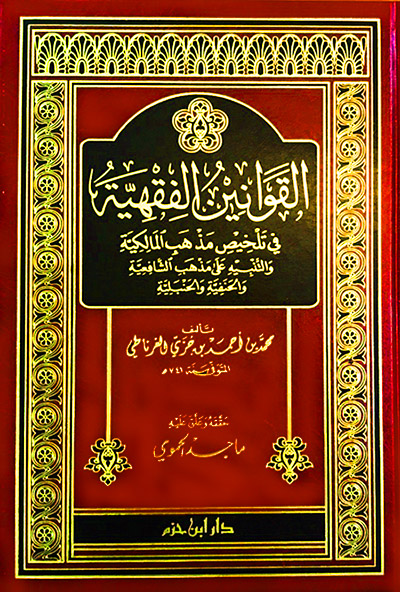 القَوَانِينُ الفِقْهِيَّة
فِي تَلْخِيصِ مَذْهَبِ المَالِكِيَّة
وَالتَّنْبِيهِ عَلَى مَذْهَبِ الشَّافِعِيَّة
وَالحَنَفِيَّة وَالحَنْبَلِيَّة
تأليف
محمد بن أحمد بن جزي الغرناطي
المتوفى سنة ٧٤١ هـ
حَقَّقَهُ وَعَلَّقَ عَلَيْهِ
ماجد الحموي
دار ابن حزم